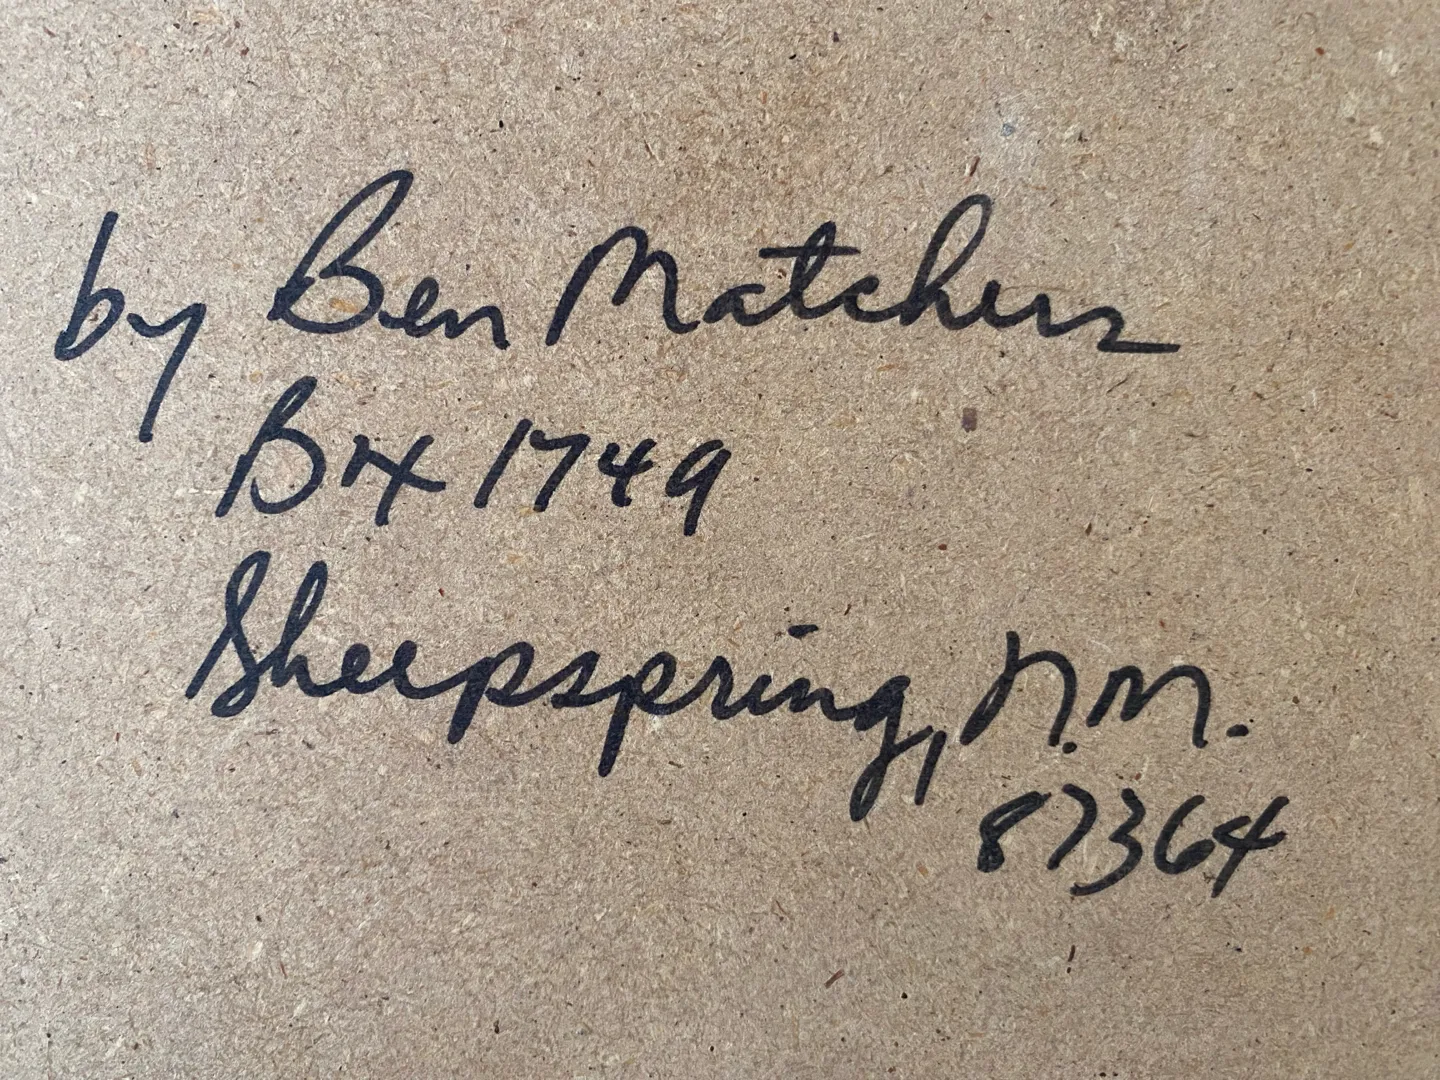 by Ben Matchus
Box 1749
Sheepspring, N.M.
87364